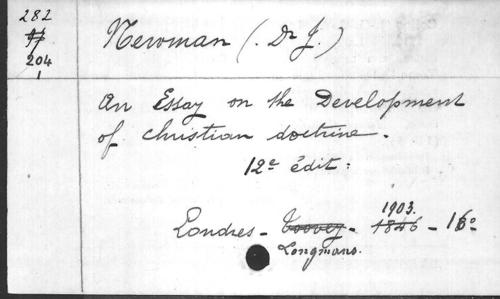 282
204
1
Newman (Dr J.)
An Essay on the Development
of christian doctrine.
12e édit:
Londres - Toovey - 1846 - 16o
1903.
Longmans.